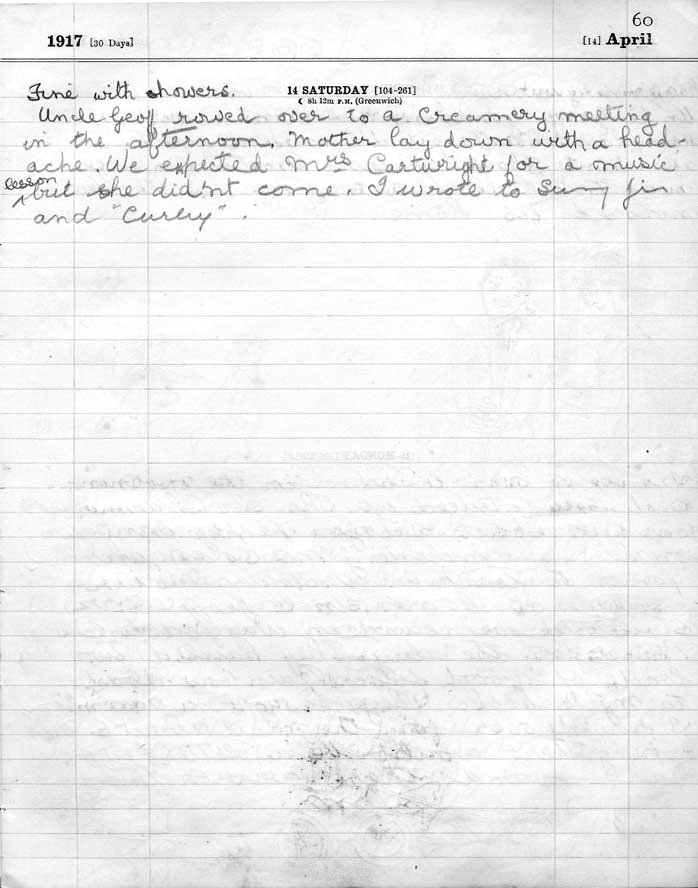 60
1917 [30 Days] [14] April
14 SATURDAY [104-261]
☾ 8h 12m P.M. (Greenwich)
Fine with showers.
Uncle Geoff rowed over to a Creamery meeting
in the afternoon. Mother lay down with a head-
ache. We expected Mrs Cartwright for a music
lesson
but she did'nt come. I wrote to Sunny Jim
and "Curley".